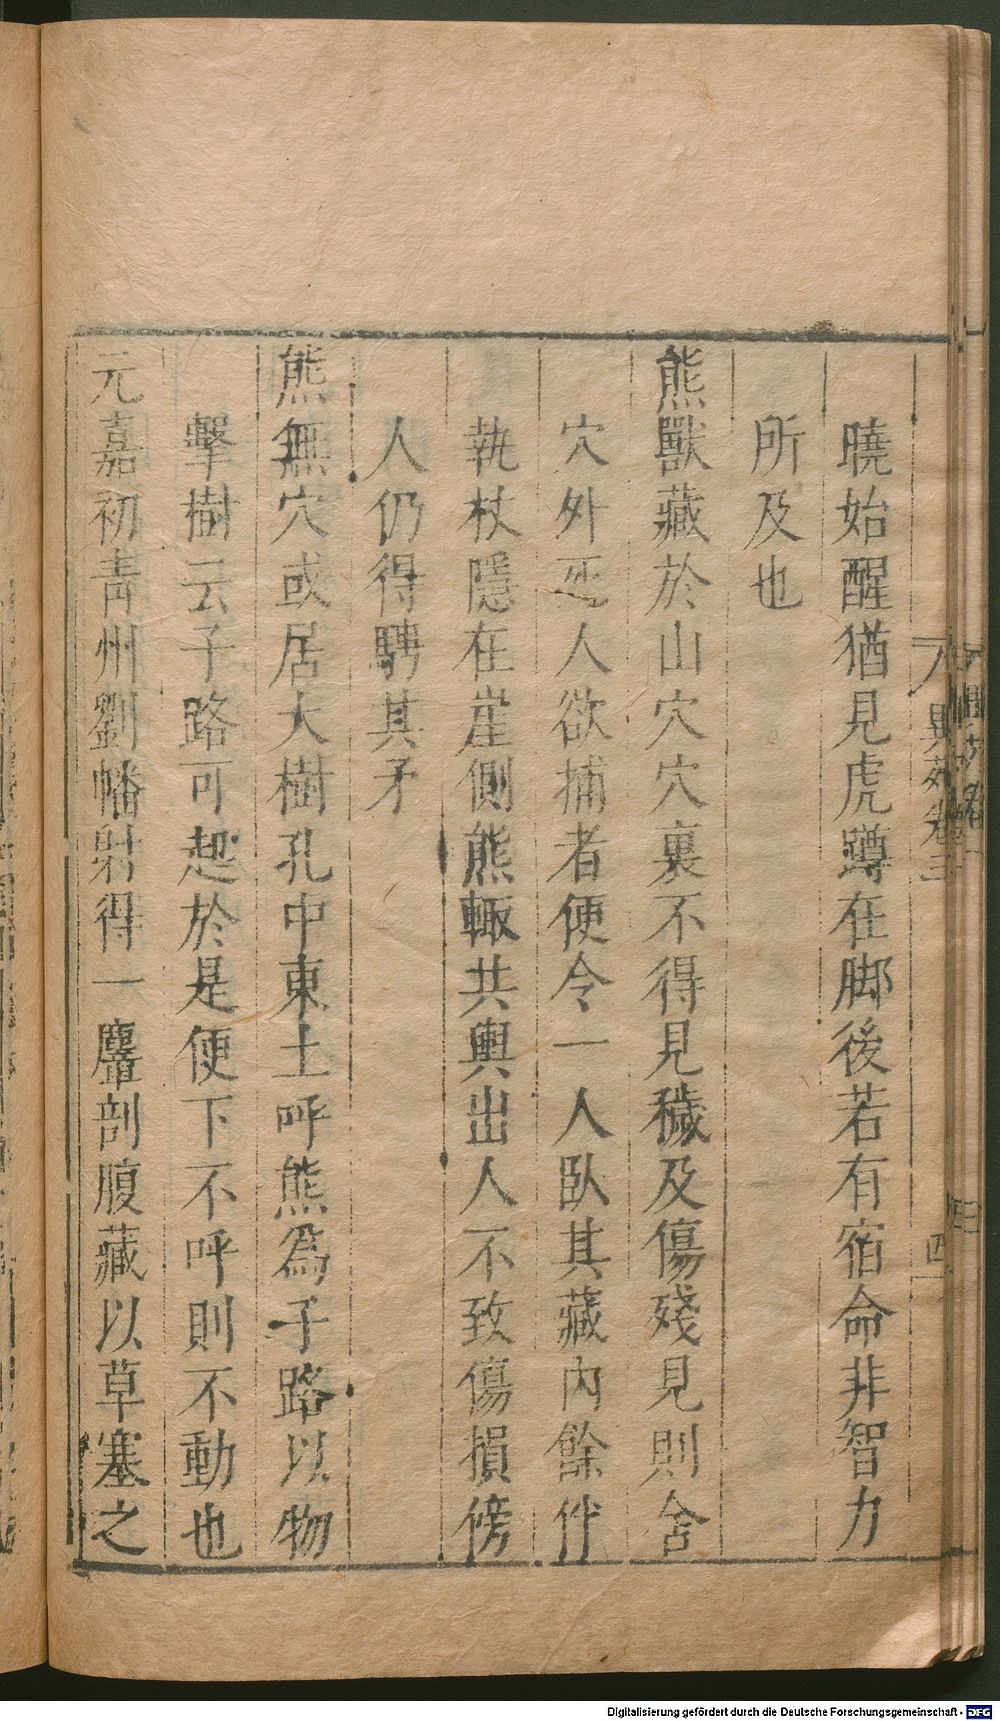 曉始醒猶見虎蹲在脚後若有宿命非智力
所及也
熊獸藏於山穴穴裏不得見穢及傷殘見則舍
穴外死人欲捕者便令一人臥其藏內餘伴
執杖隱在崖側熊輙共輿出人不致傷損傍
人仍得騁其矛
熊無穴或居大樹孔中東土呼熊爲子路以物
擊樹云子路可起於是便下不呼則不動也
元嘉初靑州劉幡射得一麞剖腹藏以草塞之
異苑卷三
四
Digitalisierung gefördert durch die Deutsche Forschungsgemeinschaft - DFG